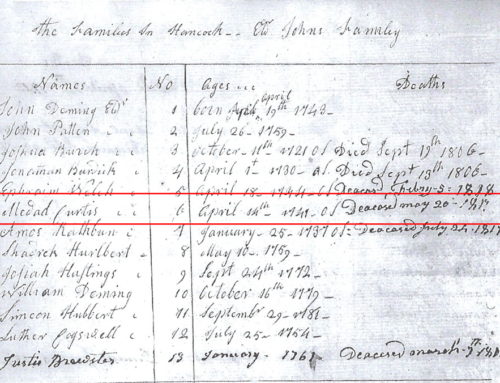 the Families In Hancock -- Ed Johns Family
Names No Ages Deaths
John Deming 1 born April 19th 1743
John Patten 2 July 26 - 1759 -
Joshua Burch 3 October 11th - 1721 OS Died Sept 19th 1806 -
4 April 1st - 1730 - OS Died Sept 13th 1806 -
Ephraim Welch 5 April 18 - 1741 - OS Deceased 1818
Medad Curtis 6 April 14th - 1741 OS Deaced may 20 - 1817
Amos Rathbun 7 January - 25 - 1737 OS - Deceased July 1817
Hurlbert 8 May 10 - 1759 -
Josiah Hastings 9 Sept 24th 1772 -
William Deming 10 October 16th 1779 -
Simeon Hubbert 11 Septembr 29 - 1781 -
Luther Cogswell 12 July 25 - 1754 -
Justis Brewster 13 January - 1761 Deceased march